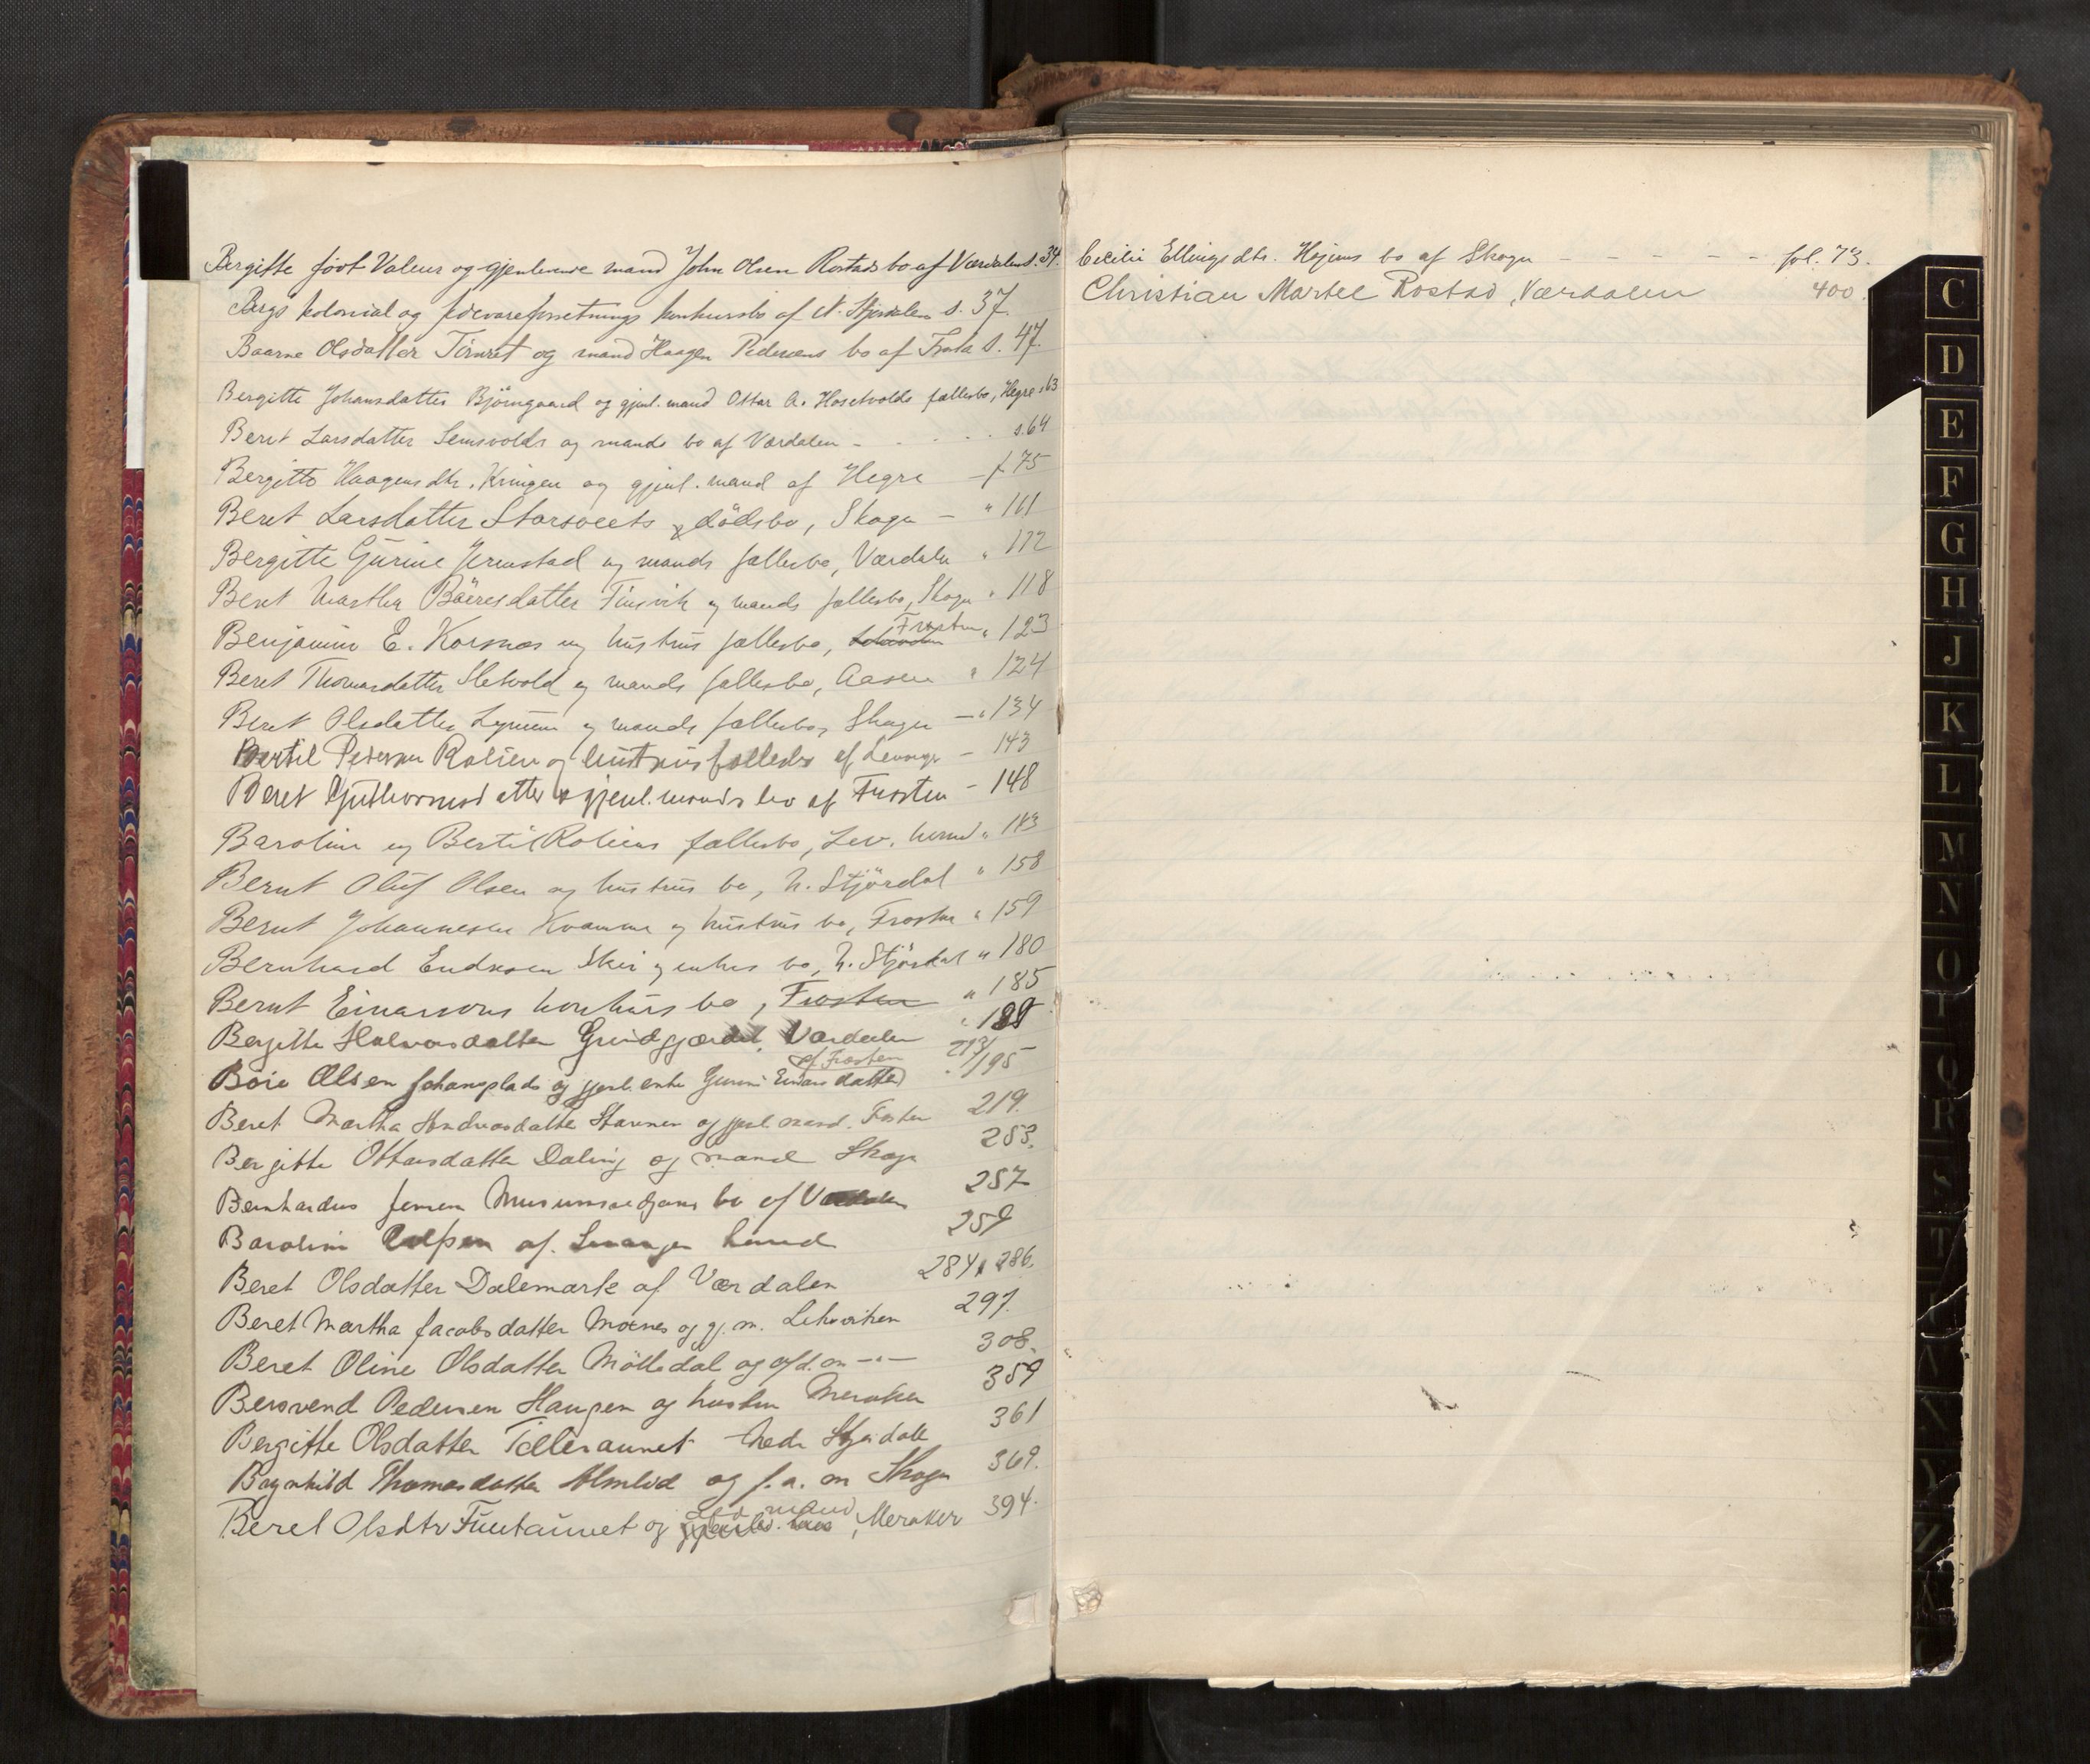 Bergitte født Valeur og gjenlevende mand John Olsen Rostads bo af Værdalen s. 34.
Bergs kolonial og fedevareforretnings konkursbo af N. Stjørdalen s. 37.
Baarne Olsdatter og mand Haagen Pedersens bo af Frosta s. 47.
Bergitte Johansdatter Björngaard og gjenl. mand Ottar A. Hosetvolds fællesbo, Hegre s 63
Beret Larsdatter Semsvolds og mands bo af Værdalen - - - - - s. 64
Bergitte Haagensdtr. Kringen og gjenl. mand af Hegre - f. 75
Beret Larsdatter dödsbo, Skogn - " 111
Bergitte Gurine Jermstad og mands fællesbo, Værdalen " 112
Beret Martha og mands fællesbo, Skogn " 118
Benjamin E. Korsnes og hustrus fællesbo, Frosten " 123
Beret Thomasdatter Sletvold og mands fællesbo, Aasen " 124
Beret Olsdatter og mands fællesbo, Skogn - " 134
Bertil Pedersen Rolien og hustrus fællesbo af Levanger - 143
Beret Guthormsdatter & gjenl. mands bo af Frosten - 148
Baroline og Bertil Roliens fællesbo, Lev. herred " 143
Bernt Oluf Olsen og hustrus bo, N. Stjördal " 158
Bernt Johannesen Kvamme og hustrus bo, Frosten " 159
Bernhard Endresen og enkes bo, N. Stjördal " 180
Bernt Einarsons konkursbo, Frosten " 185
Bergitte Halvorsdatter Grindgjærdet, Værdalen "
Boie Olsen Johansplads og gjenl. enke Gunni Einarsdatter af Frosten 213/195
Beret Martha Andreasdatter og gjenl. mand. Frosten 219.
Bergitte Ottarsdatter Daling og mand Skogn 253.
Bernhardus Jensen bo af Værdalen 257
Baroline af. Levanger herred 259
Beret Olsdatter Dalemark af Værdalen 284 & 286.
Beret Martha Jacobsdatter Moknes og gj. m. Leksviken 297.
Beret Oline Olsdatter Mölledal og afd. m -"- 308.
Bersvend Pedersen Haugen og hustru Meraker 359
Bergitte Olsdatter Tilleraunet Nedr Stjørdalen 361
Brynhild Thomasdatter Almlid og f. a. m Skogn 369.
Beret Olsdtr Funtaunet og afd. mand, Meraker 394.
Cecilie Ellingsdtr. Hojems bo af Skogn - - - - - fol. 73.
Christian Martel Rostad, Værdalen 400.
C
D
E
F
G
H
J
K
L
M
N
O
R
T